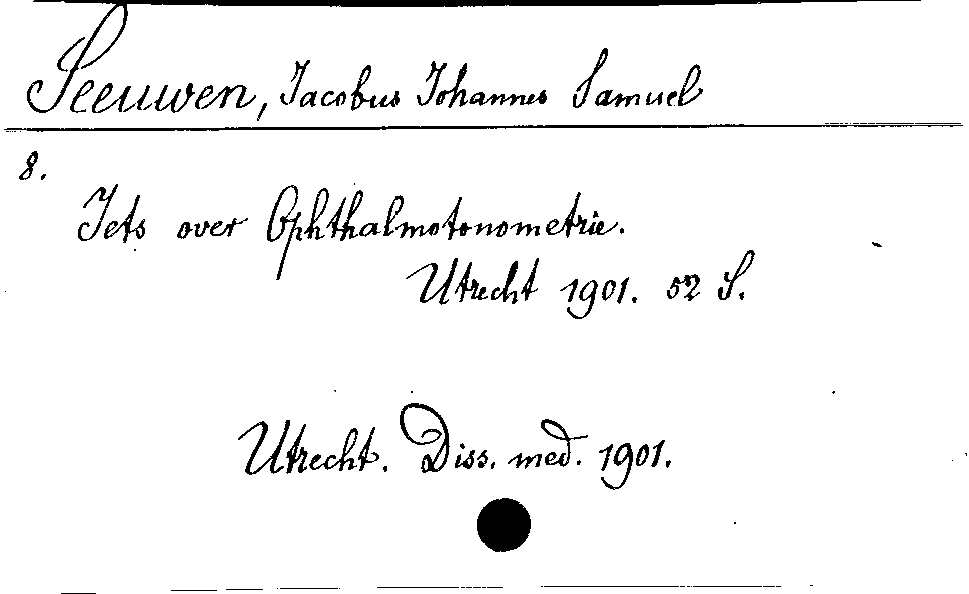 Seeuwen, Jacobus Johannes Samuel
8.
Iets over Ophthalmotonometrie.
Utrecht 1901. 52 S.
Utrecht. Diss. med. 1901.